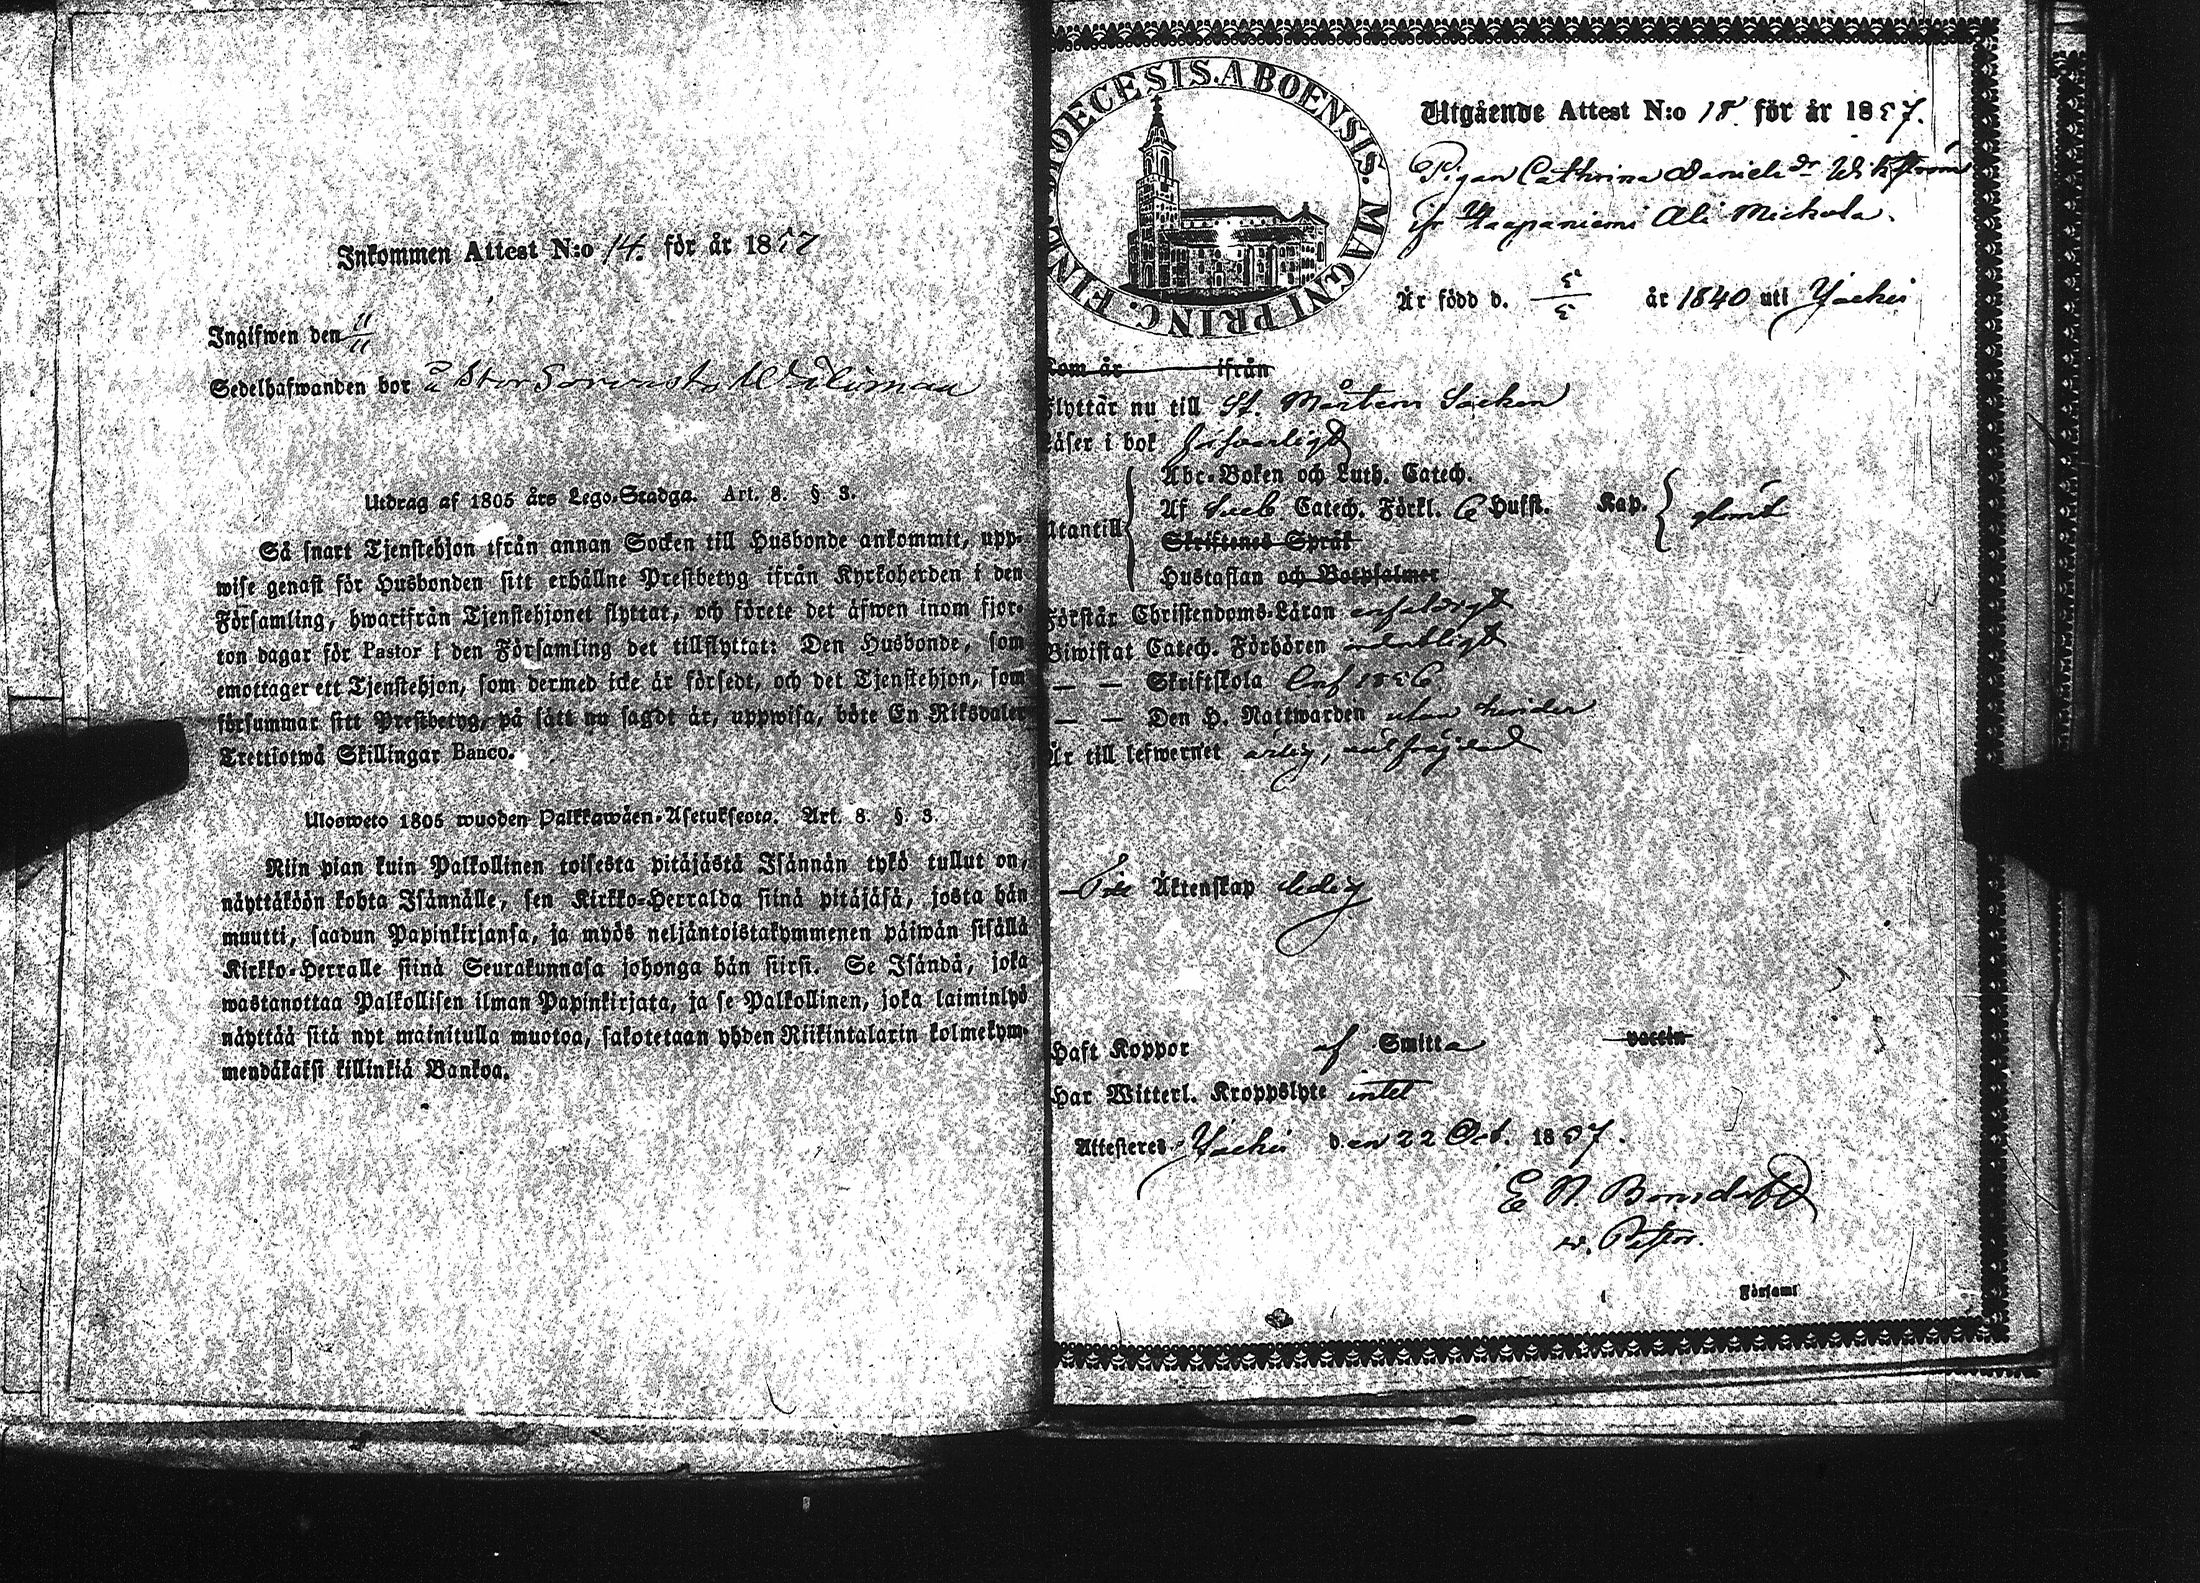 Inkommen Attest N:o 14. för år 1857
Ingifwen den 11/11
Sedelhafwanden bor på Stor
Utdrag af 1805 års Lego-Stadga. Art. 8. § 3.
Så snart Tjenstehjon ifrån annan Socken till Husbonde ankommit, upp-
wise genast för Husbonden sitt erhållne Prestbetyg ifrån Kyrkoherden i den
Församling, hwarifrån Tjenstehjonet flyttat, och förete det äfwen inom fjor-
ton dagar för Pastor i den Församling det tillflyttat: Den Husbonde, som
emottager ett Tjenstehjon, som dermed icke är försedt, och det Tjenstehjon, som
försummar sitt Prestbetyg, på sätt nu sagdt är, uppwisa, böte En Riksdaler
Trettiotwå Skillingar Banco.
Ulosweto 1805 wuoden Palkkawäen-Asetuksesta. Art. 8. § 3.
Niin pian kuin Palkollinen toisesta pitäjästä Isännän tykö tullut on,
näyttäköön kohta Isännälle, sen Kirkko-Herralda siinä pitäjäsä, josta hän
muutti, saadun Papinkirjansa, ja myös neljäntoistakymmenen päiwän sisällä
Kirkko-Herralle siinä Seurakunnasa johonga hän siirsi. Se Isändä, joka
wastanottaa Palkollisen ilman Papinkirjata, ja se Palkollinen, joka laiminlyö
näyttää sitä nyt mainitulla muotoa, sakotetaan yhden Riikintalarin kolmekym-
mendäkaksi killinkiä Bankoa.
DIOECESIS. ABOENSIS. MAGNI PRINC. FINL.
Utgående Attest N:o 18. för år 1857.
Pigan Cathrina Daniels dr Wikström
ifr Haapaniemi Ali Mickola.
Är född d. 5/5 år 1840 uti Jockis
Kom år ifrån
Flyttar nu till St. Mårtens Socken
Läser i bok försvarligt
Abc-Boken och Luth. Catech.
Af Sveb. Catech. Förkl. 6 Hufst. Kap.
Utantill
Skriftenes Språk
Hustaflan och Botpsalmer
Förstår Christendoms-Läran enfaldigt
Biwistat Catech. Förhören ordentligt
— — Skriftskola Conf 1856
— — Den H. Nattwarden utan hinder
Är till lefwernet ärlig, väl frejdad
Till Äktenskap ledig
Haft Koppor af Smitta vaccin
Har Witterl. Kroppslyte intet
Attesteres Jockis den 22 Oct. 1857.
E N Bonsdorff
v. Pastor.
Församl